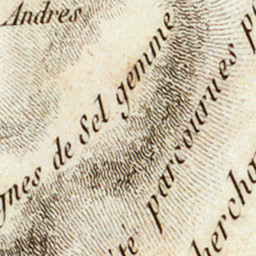 Andres
gnes de Sel gemme
té parcourues p
hercha